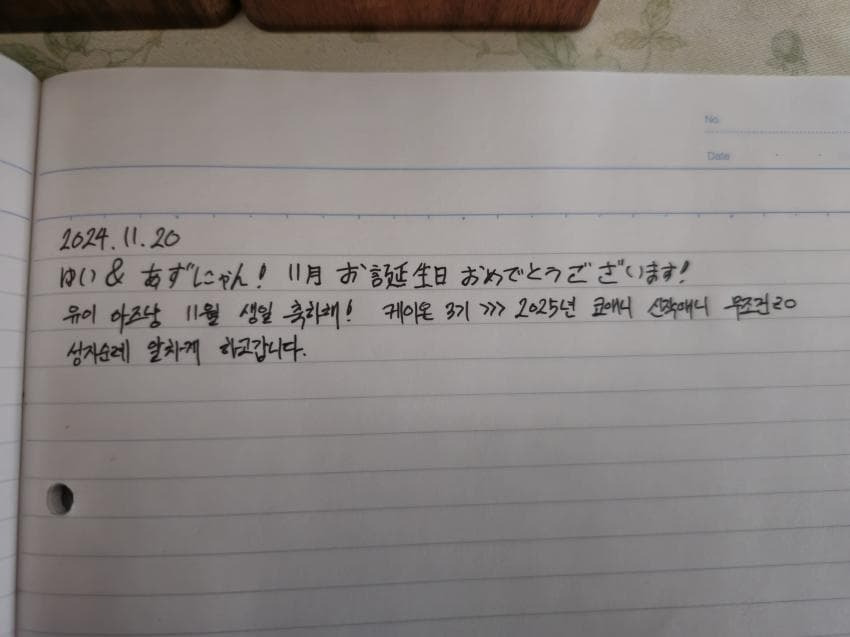 No.
Date . .
2024.11.20
ゆい & あずにゃん! 11月 お誕生日 おめでとうございます!
유이 아즈냥 11월 생일 축하해! 케이온 3기 >>> 2025년 쿄애니 신작애니 무조건 ㄹㅇ
성지순례 알차게 하고갑니다.